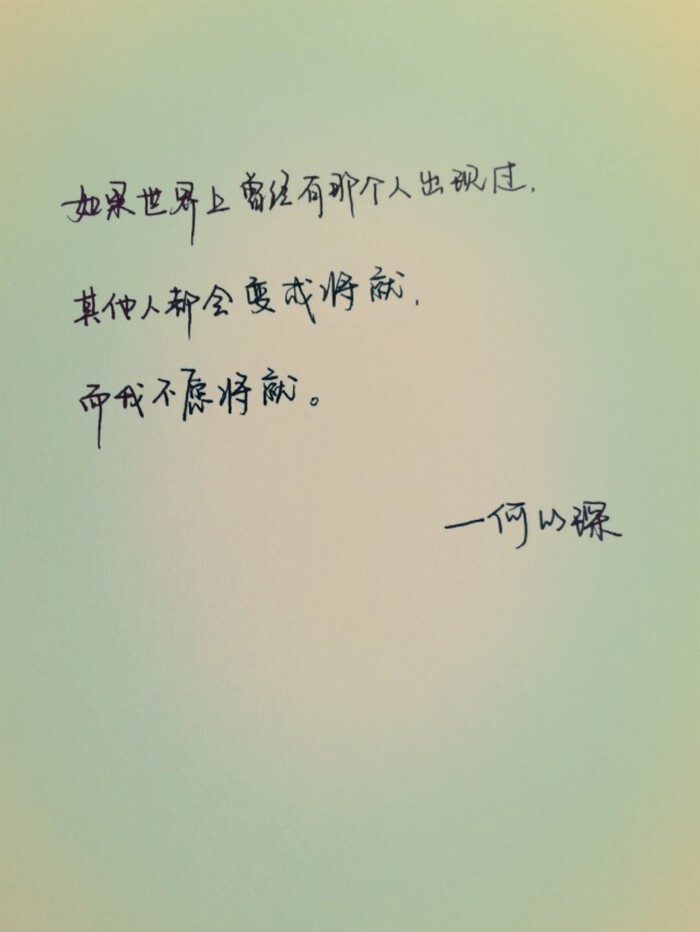 如果世界上曾经有那个人出现过,
其他人都会变成将就,
而我不愿将就。
—何以琛